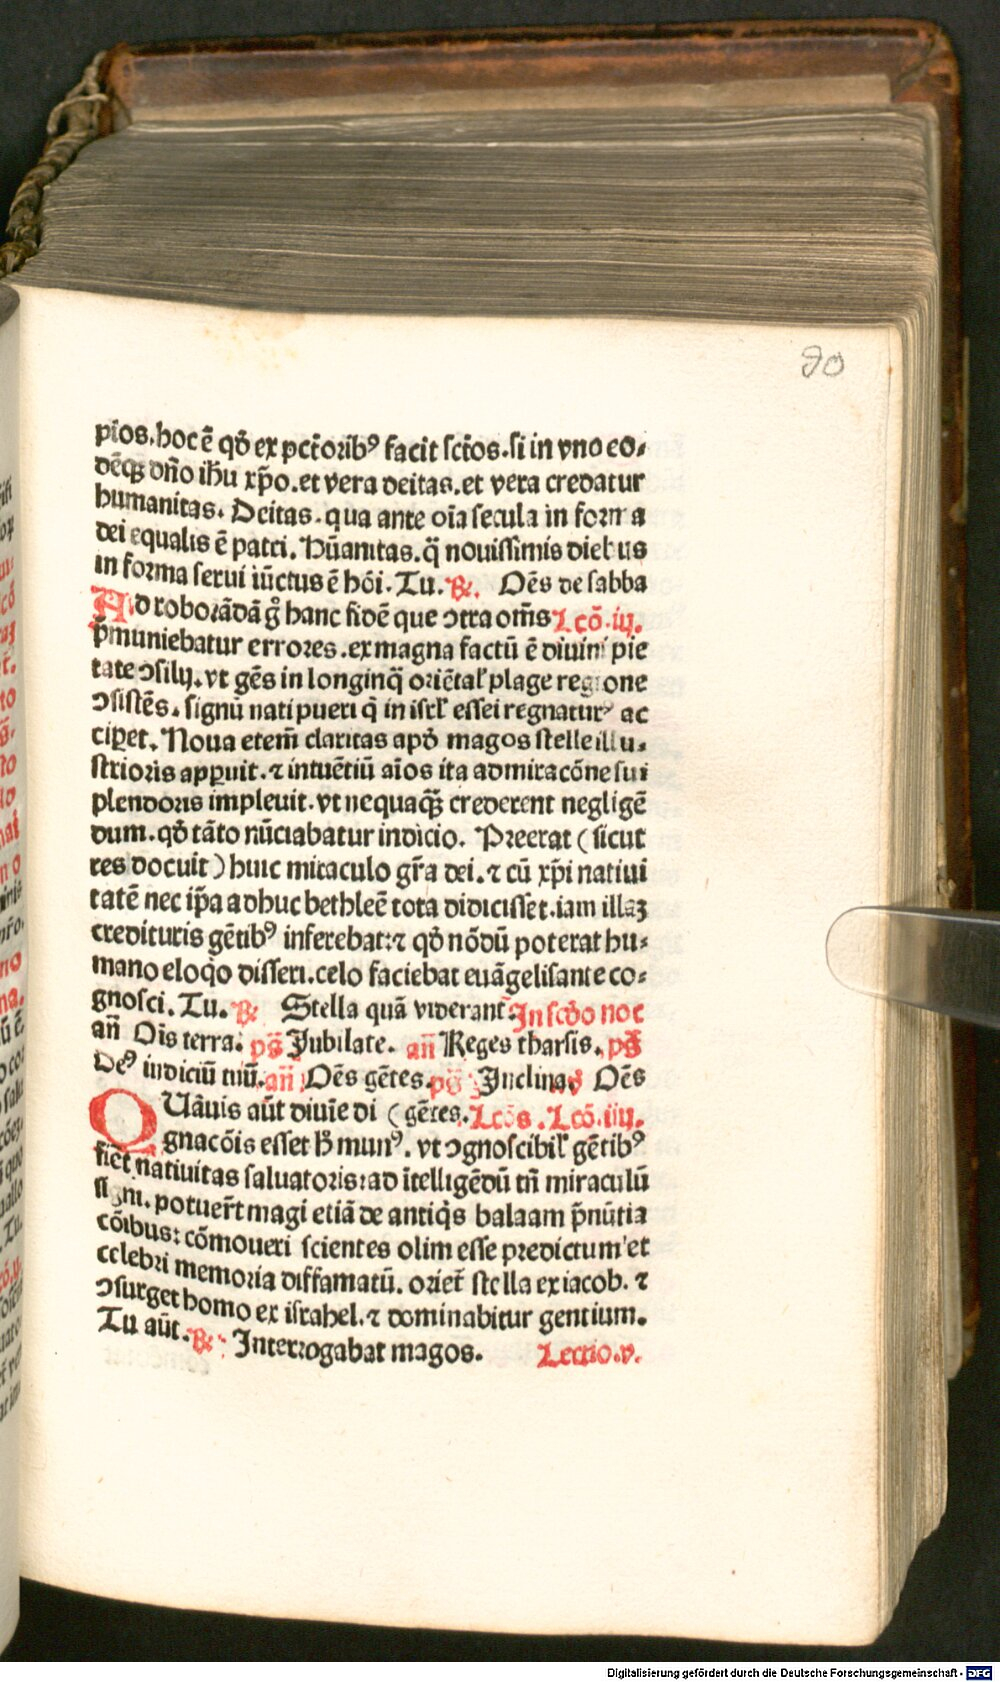 80
pios.hoc ē qđ ex pctoribꝰ facit sctos.si in vno eo⸗
dēqꝫ dño ihu xp̄o.et vera deitas.et vera credatur
humanitas. Deitas.qua ante oīa secula in forma
dei equalis ē patri. Hūanitas.q̄ nouissimis diebus
in forma serui iūctus ē hōi. Tu. ℞. Oēs de sabba
Ad roborādā gͦ hanc fidē que ↄtra om̄s Lcō.iij.
p̄muniebatur errores.ex magna factū ē diuini pie
tate ↄsilij.vt gēs in longinq̄ oriētal' plage regione
ↄsistēs.signū nati pueri q̇ in isrl' essei regnaturꝰ ac
ciꝑet. Noua etem̄ claritas apđ magos stelle illu⸗
strioris apꝑuit.⁊ intuētiū aīos ita admiracōne sui
plendoris impleuit.vt nequaqꝫ̄ crederent negligē
dum.qđ tāto nūciabatur indicio. Preerat ( sicut
res docuit ) huic miraculo gr̄a dei.⁊ cū xp̄i natiui
tatē nec ip̄a adhuc bethleē tota didicisset.iam illaꝫ
credituris gētibꝰ inferebat:⁊ qđ nōdū poterat hu⸗
mano eloqͦo disseri.celo faciebat euāgelisante co⸗
gnosci. Tu. ℞ Stella quā viderant̄. In scđo noc
an̄ Oīs terra. ps̄ Jubilate. an̄ Reges tharsis. ps̄
Deꝰ iudiciū tuū. an̄ Oēs gētes. ps̄ Inclina. ỽ Oēs
QUāuis aūt diuīe di ( gētes. Lcōs. Lcō.iiij.
gnacōis esset ħ munꝰ. vt ↄgnoscibil' gētibꝰ
fiēt natiuitas saluatoris:ad ītelligēdū tn̄ miraculū
signi. potuer̄t magi etiā de antiq̇s balaam p̄nūtia
cōibus: cōmoueri scientes olim esse predictum et
celebri memoria diffamatū. oriet̄ stella ex iacob. ⁊
ↄsurget homo ex israhel.⁊ dominabitur gentium.
Tu aūt. ℞. Interrogabat magos. Lectio.v.
Digitalisierung gefördert durch die Deutsche Forschungsgemeinschaft - DFG